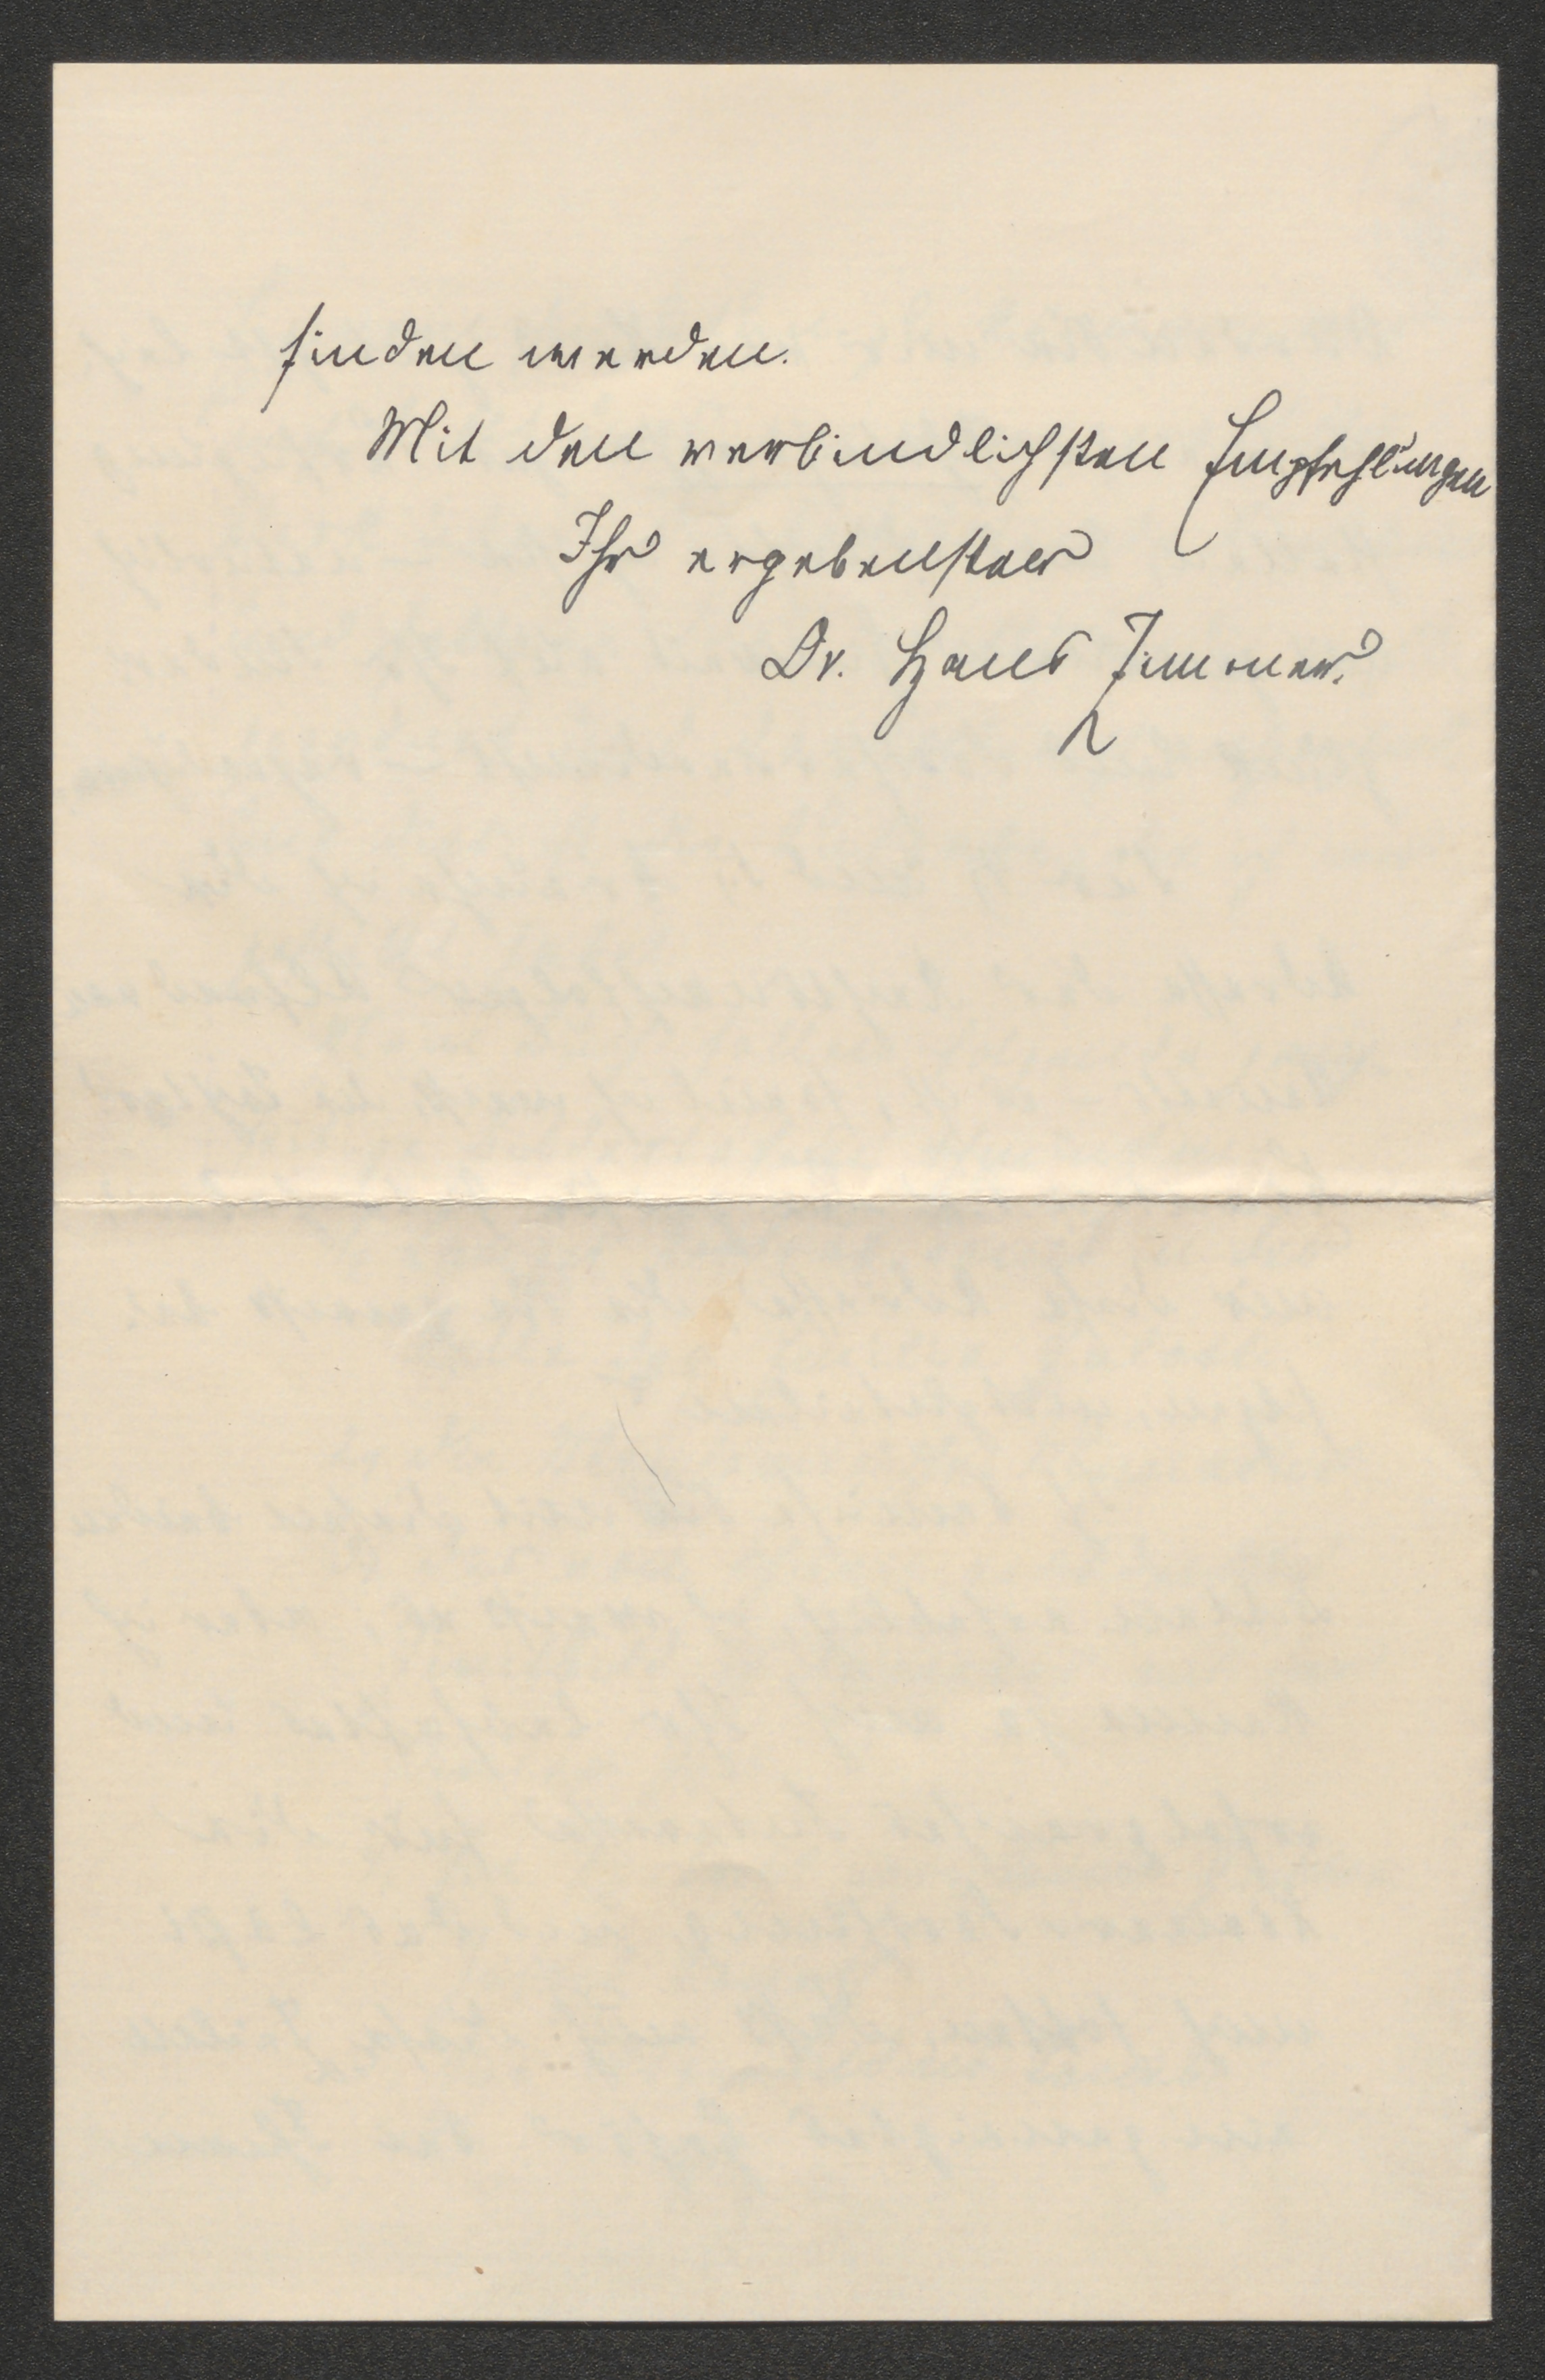 finden werden.
Mit den verbindlichsten Empfehlungen
Ihr ergebenster
Dr. Hans Zimmer.